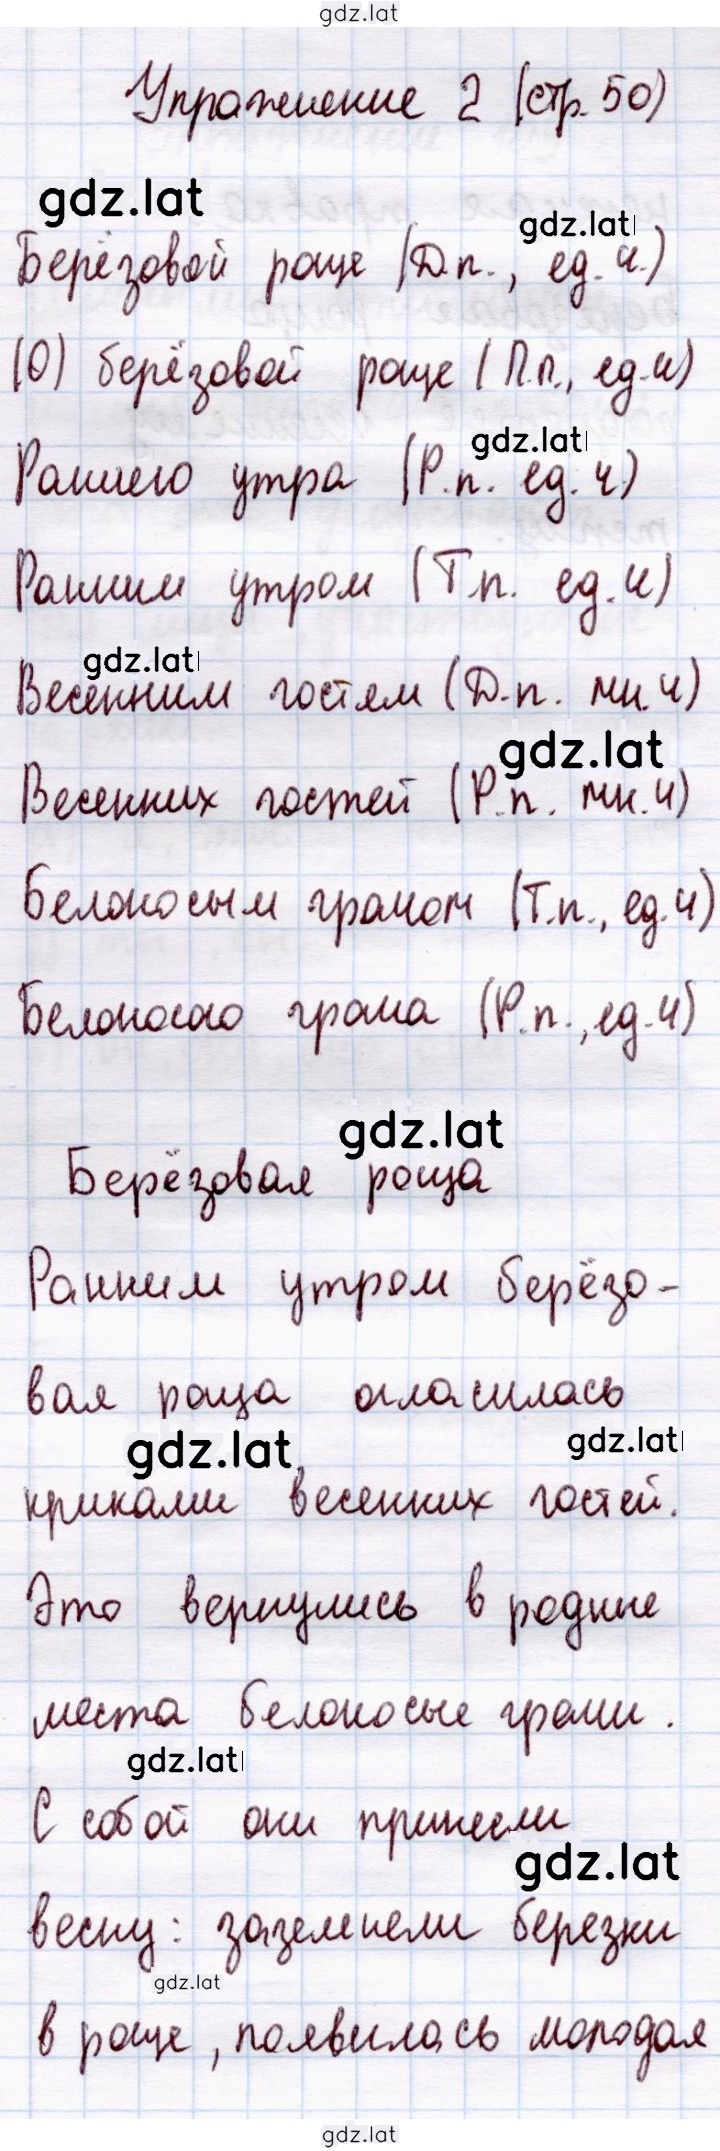 gdz.lat
Упражнение 2 (стр. 50)
gdz.lat
gdz.lat
Берёзовой роще (Д.п., ед.ч.)
(О) берёзовой роще (П.п., ед.ч)
gdz.lat
Раннего утра (Р.п. ед.ч.)
Ранним утром (Т.п. ед.ч)
gdz.lat
Весенним гостям (Д.п. мн.ч)
gdz.lat
Весенних гостей (Р.п. мн.ч)
Белоносым грачом (Т.п., ед.ч)
Белоносого грача (Р.п., ед.ч)
gdz.lat
Берёзовая роща
Ранним утром берёзо-
вая роща огласилась
gdz.lat
gdz.lat
криками весенних гостей.
Это вернулись в родные
места белоносые грачи.
gdz.lat
С собой они принесли
gdz.lat
весну: зазеленели березки
gdz.lat
в роще, появилась молодая
gdz.lat